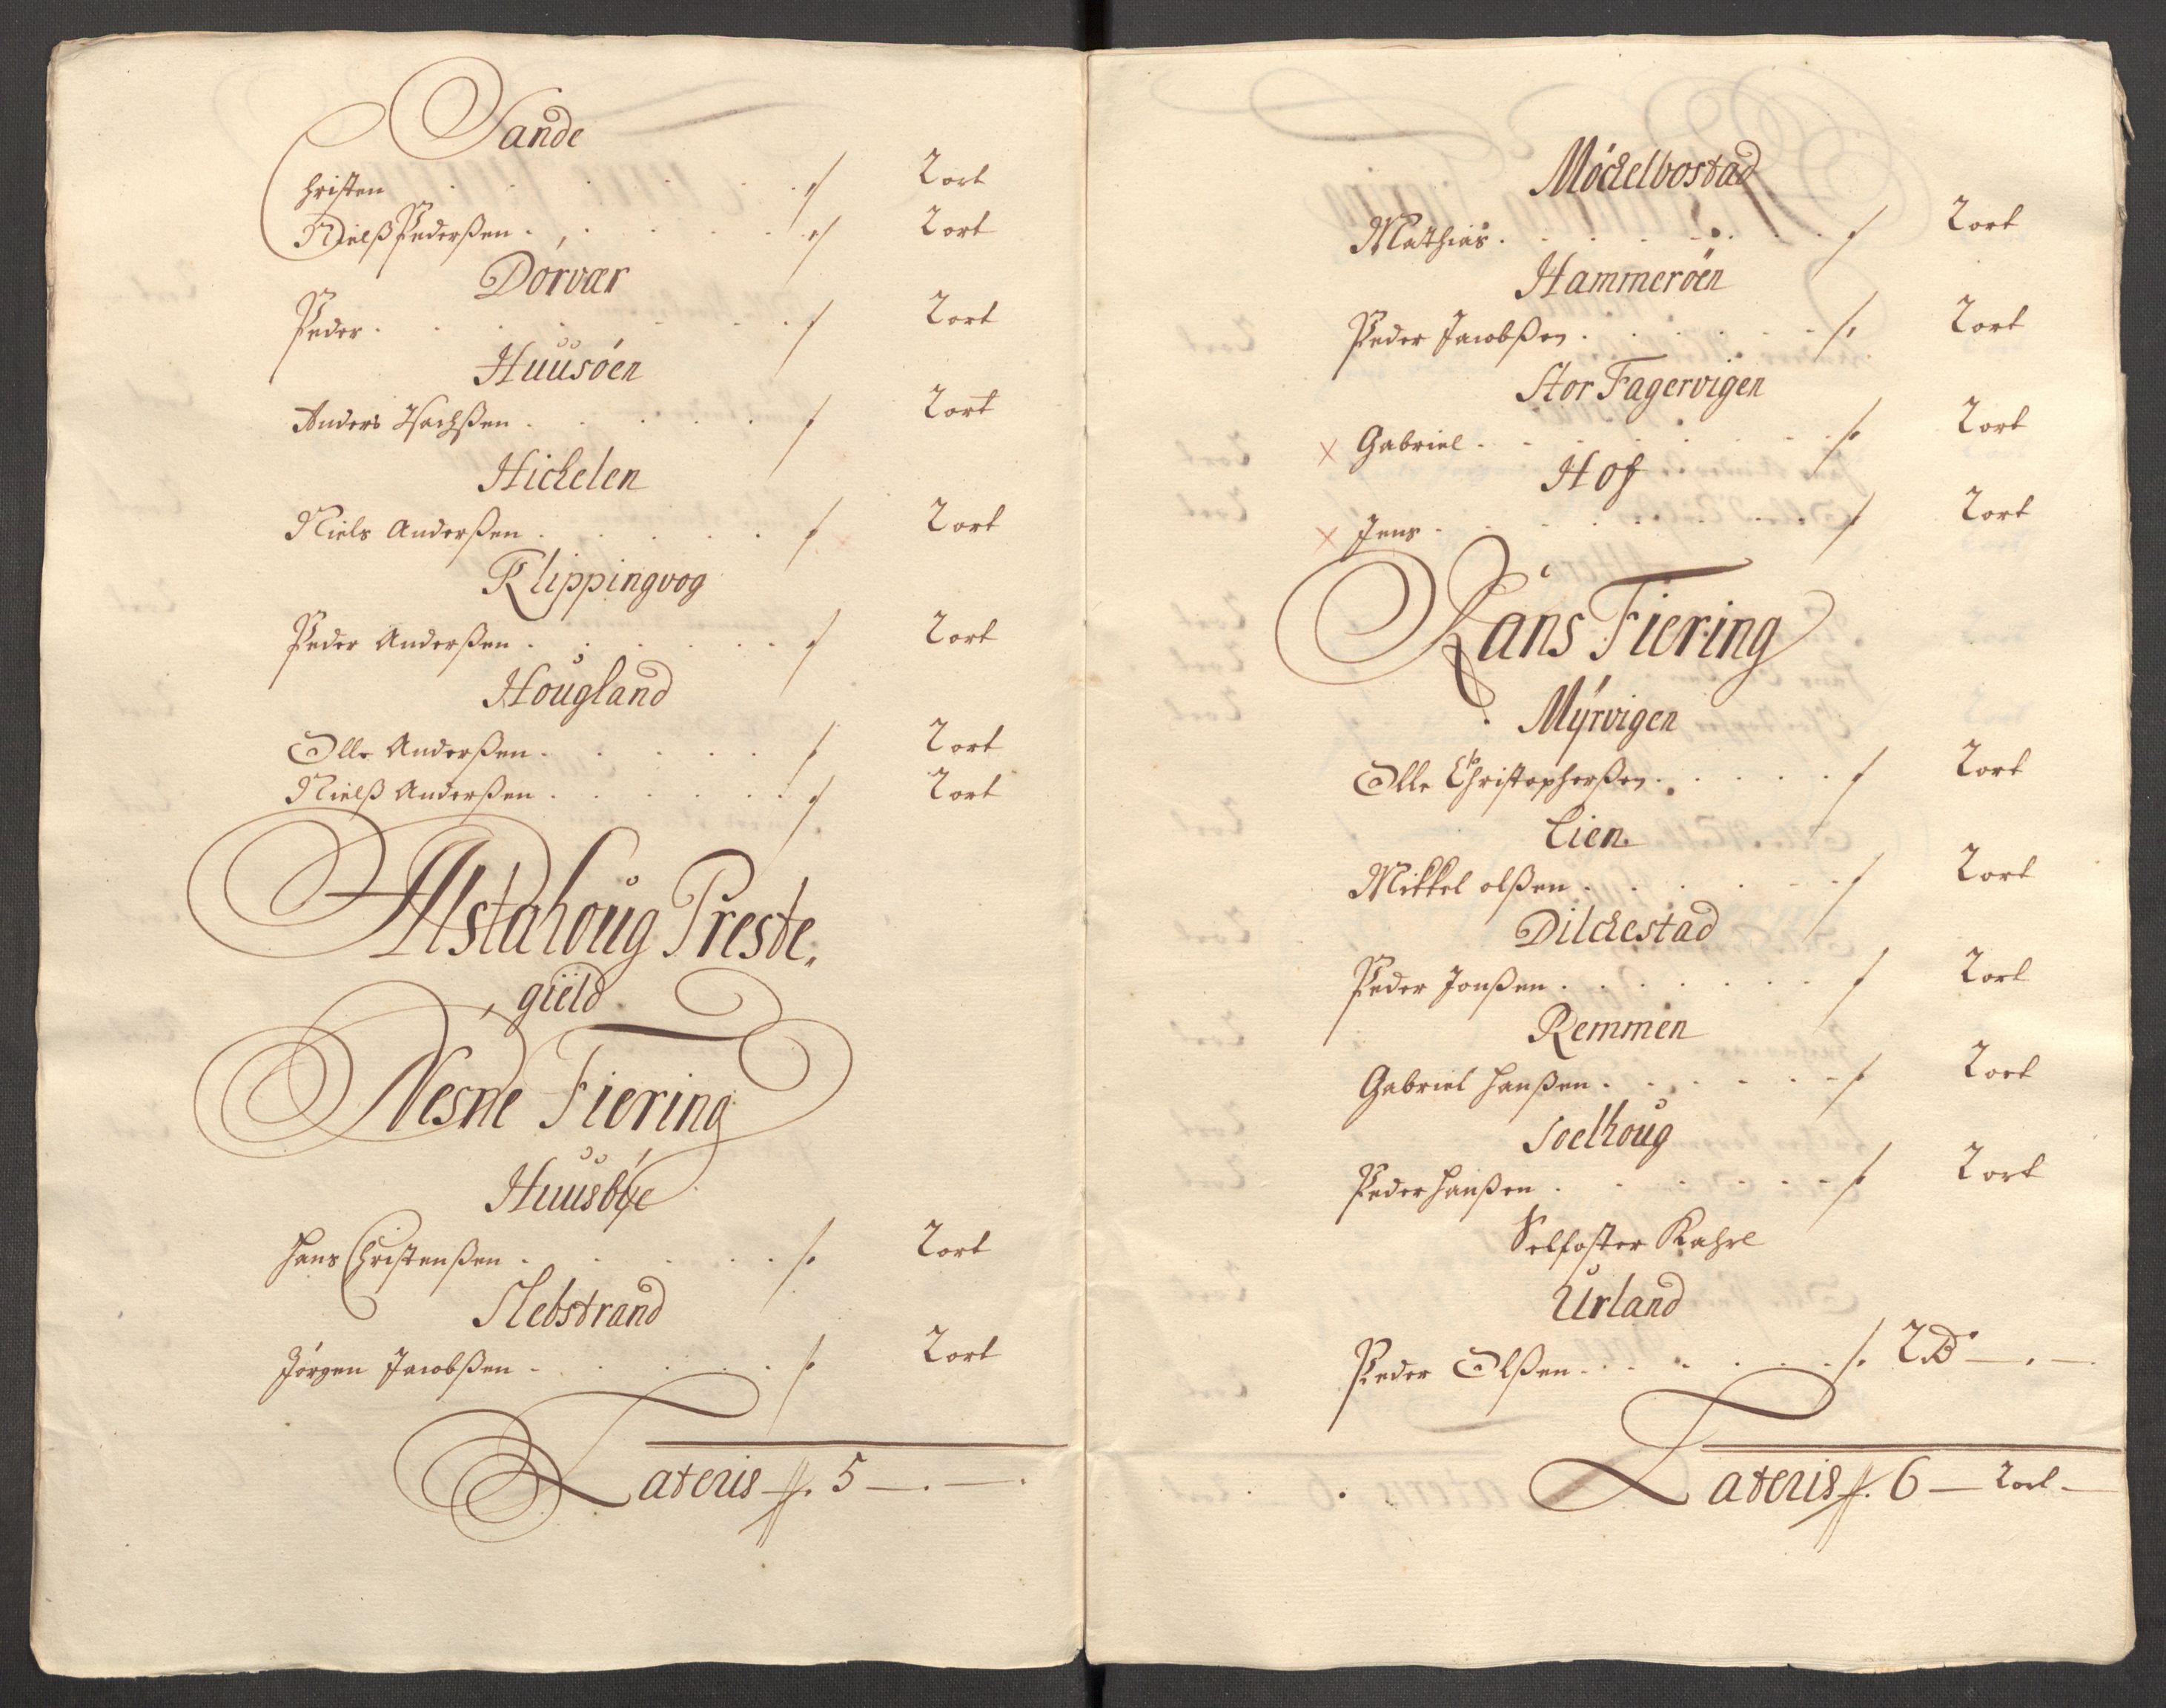 Sande
Christen . . . . . . . /. 2 ort
Nielß Pederßen . . . . . . /. 2 ort
Dorvær
Peder . . . . . . . /. 2 ort
Huusöen
Anders Isachßen . . . . . /. 2 ort
Hickelen
Niels Anderßen . . . . . /. 2 ort
Klippingvog
Peder Anderßen . . . . . . /. 2 ort
Hougland
Olle Anderßen . . . . . /. 2 ort
Nielß Anderßen . . . . . . /. 2 ort
Alstahoug Preste„
gield
Nesne Fiering
Huusbÿe
Hans Christenßen . . . . . /. 2 ort
Slebstrand
Jörgen Jacobßen . . . . . /. 2 ort
Lateris /. 5 — . —
Möckelbostad
Mathias . . . . . . . /. 2 ort
Hammeröen
Peder Jacobßen . . . . . . /. 2 ort
Stor Fagervigen
× Gabriel . . . . . . . /. 2 ort
Hof
× Jens . . . . . . . . /. 2 ort
Rans Fiering
Mÿrvigen
Olle Christopherßen . . . . . /. 2 ort
Lien
Mikkel olßen . . . . . . /. 2 ort
Dilckestad
Peder Jonßen . . . . . . /. 2 ort
Remmen
Gabriel Hanßen . . . . . . /. 2 ort
Soelhoug
Peder Hanßen . . . . . . /. 2 ort
Selfoster Kahrl
Urland
Peder Olßen . . . . . . /. 2 D — . —
Lateris /. 6 — 2 ort —